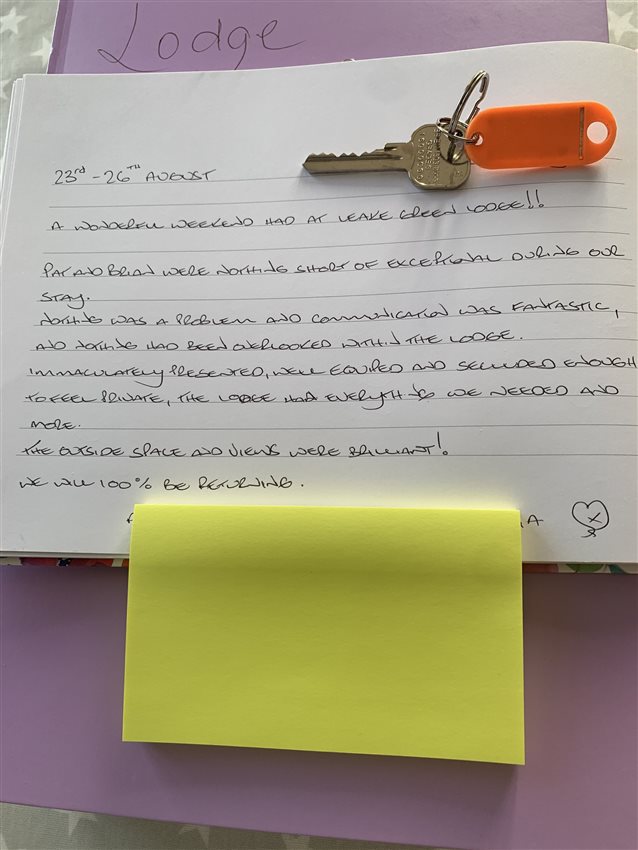 Lodge
23rd - 26TH AUGUST
A WONDERFUL WEEKEND HAD AT LEAKE GREEN LODGE!!
PAT AND BRIAN WERE NOTHING SHORT OF EXCEPTIONAL DURING OUR
STAY.
NOTHING WAS A PROBLEM AND COMMUNICATION WAS FANTASTIC,
AND NOTHING HAD BEEN OVERLOOKED WITHIN THE LODGE.
IMMACULATELY PRESENTED, WELL EQUIPED AND SECLUDED ENOUGH
TO FEEL PRIVATE, THE LODGE HAD EVERYTHING WE NEEDED AND
MORE.
THE OUTSIDE SPACE AND VIEWS WERE BRILLIANT!
WE WILL 100% BE RETURNING.